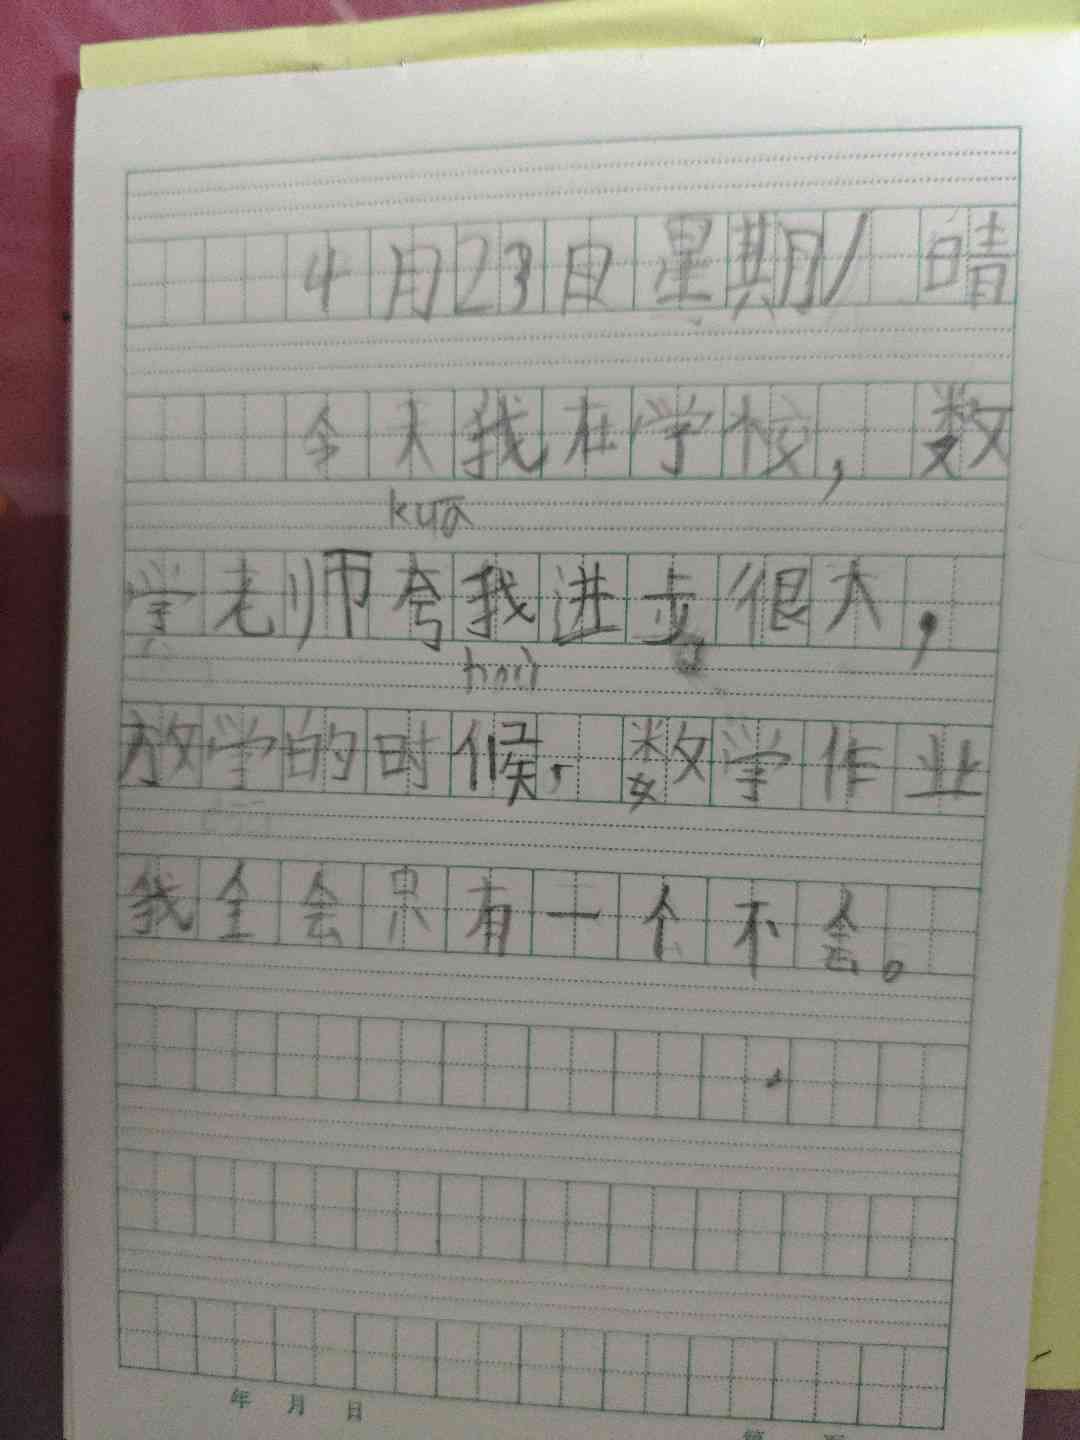 4月23日星期/ 晴
今天我在学校，数
kua
学老师夸我进步很大，
hou
放学的时候，数学作业
我全会只有一个不会。
年 月 日